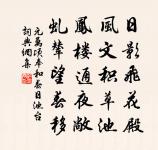 日影飛花殿
風文積草池
鳳樓通夜敞
虬輦望春移
元萬頃奉和春日池台
詞典網集